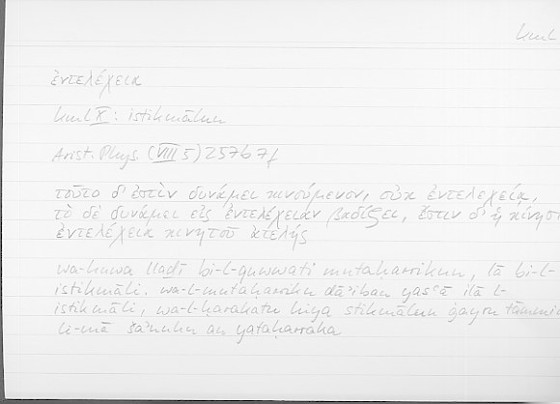 kml
ἐντελέχεια
kml X: istikmālun
Arist. Phys. (VIII 5) 257b 7f
τοῦτο δ' ἐστὶν δυνάμει κινούμενον, οὐκ ἐντελεχείᾳ,
τὸ δὲ δυνάμει εἰς ἐντελέχειαν βαδίζει, ἔστιν δ' ἡ κίνησι
ἐντελέχεια κινητοῦ ἀτελής
wa-huwa lladī bi-l-quwwati mutaḥarrikun, lā bi-l-
istikmāli. wa-l-mutaḥarriku dāʾiban yasʿā ilā l-
istikmāli, wa-l-ḥarakatu hiya stikmālun ġayru tāmmi
li-mā šaʾnuhu an yataḥarraka